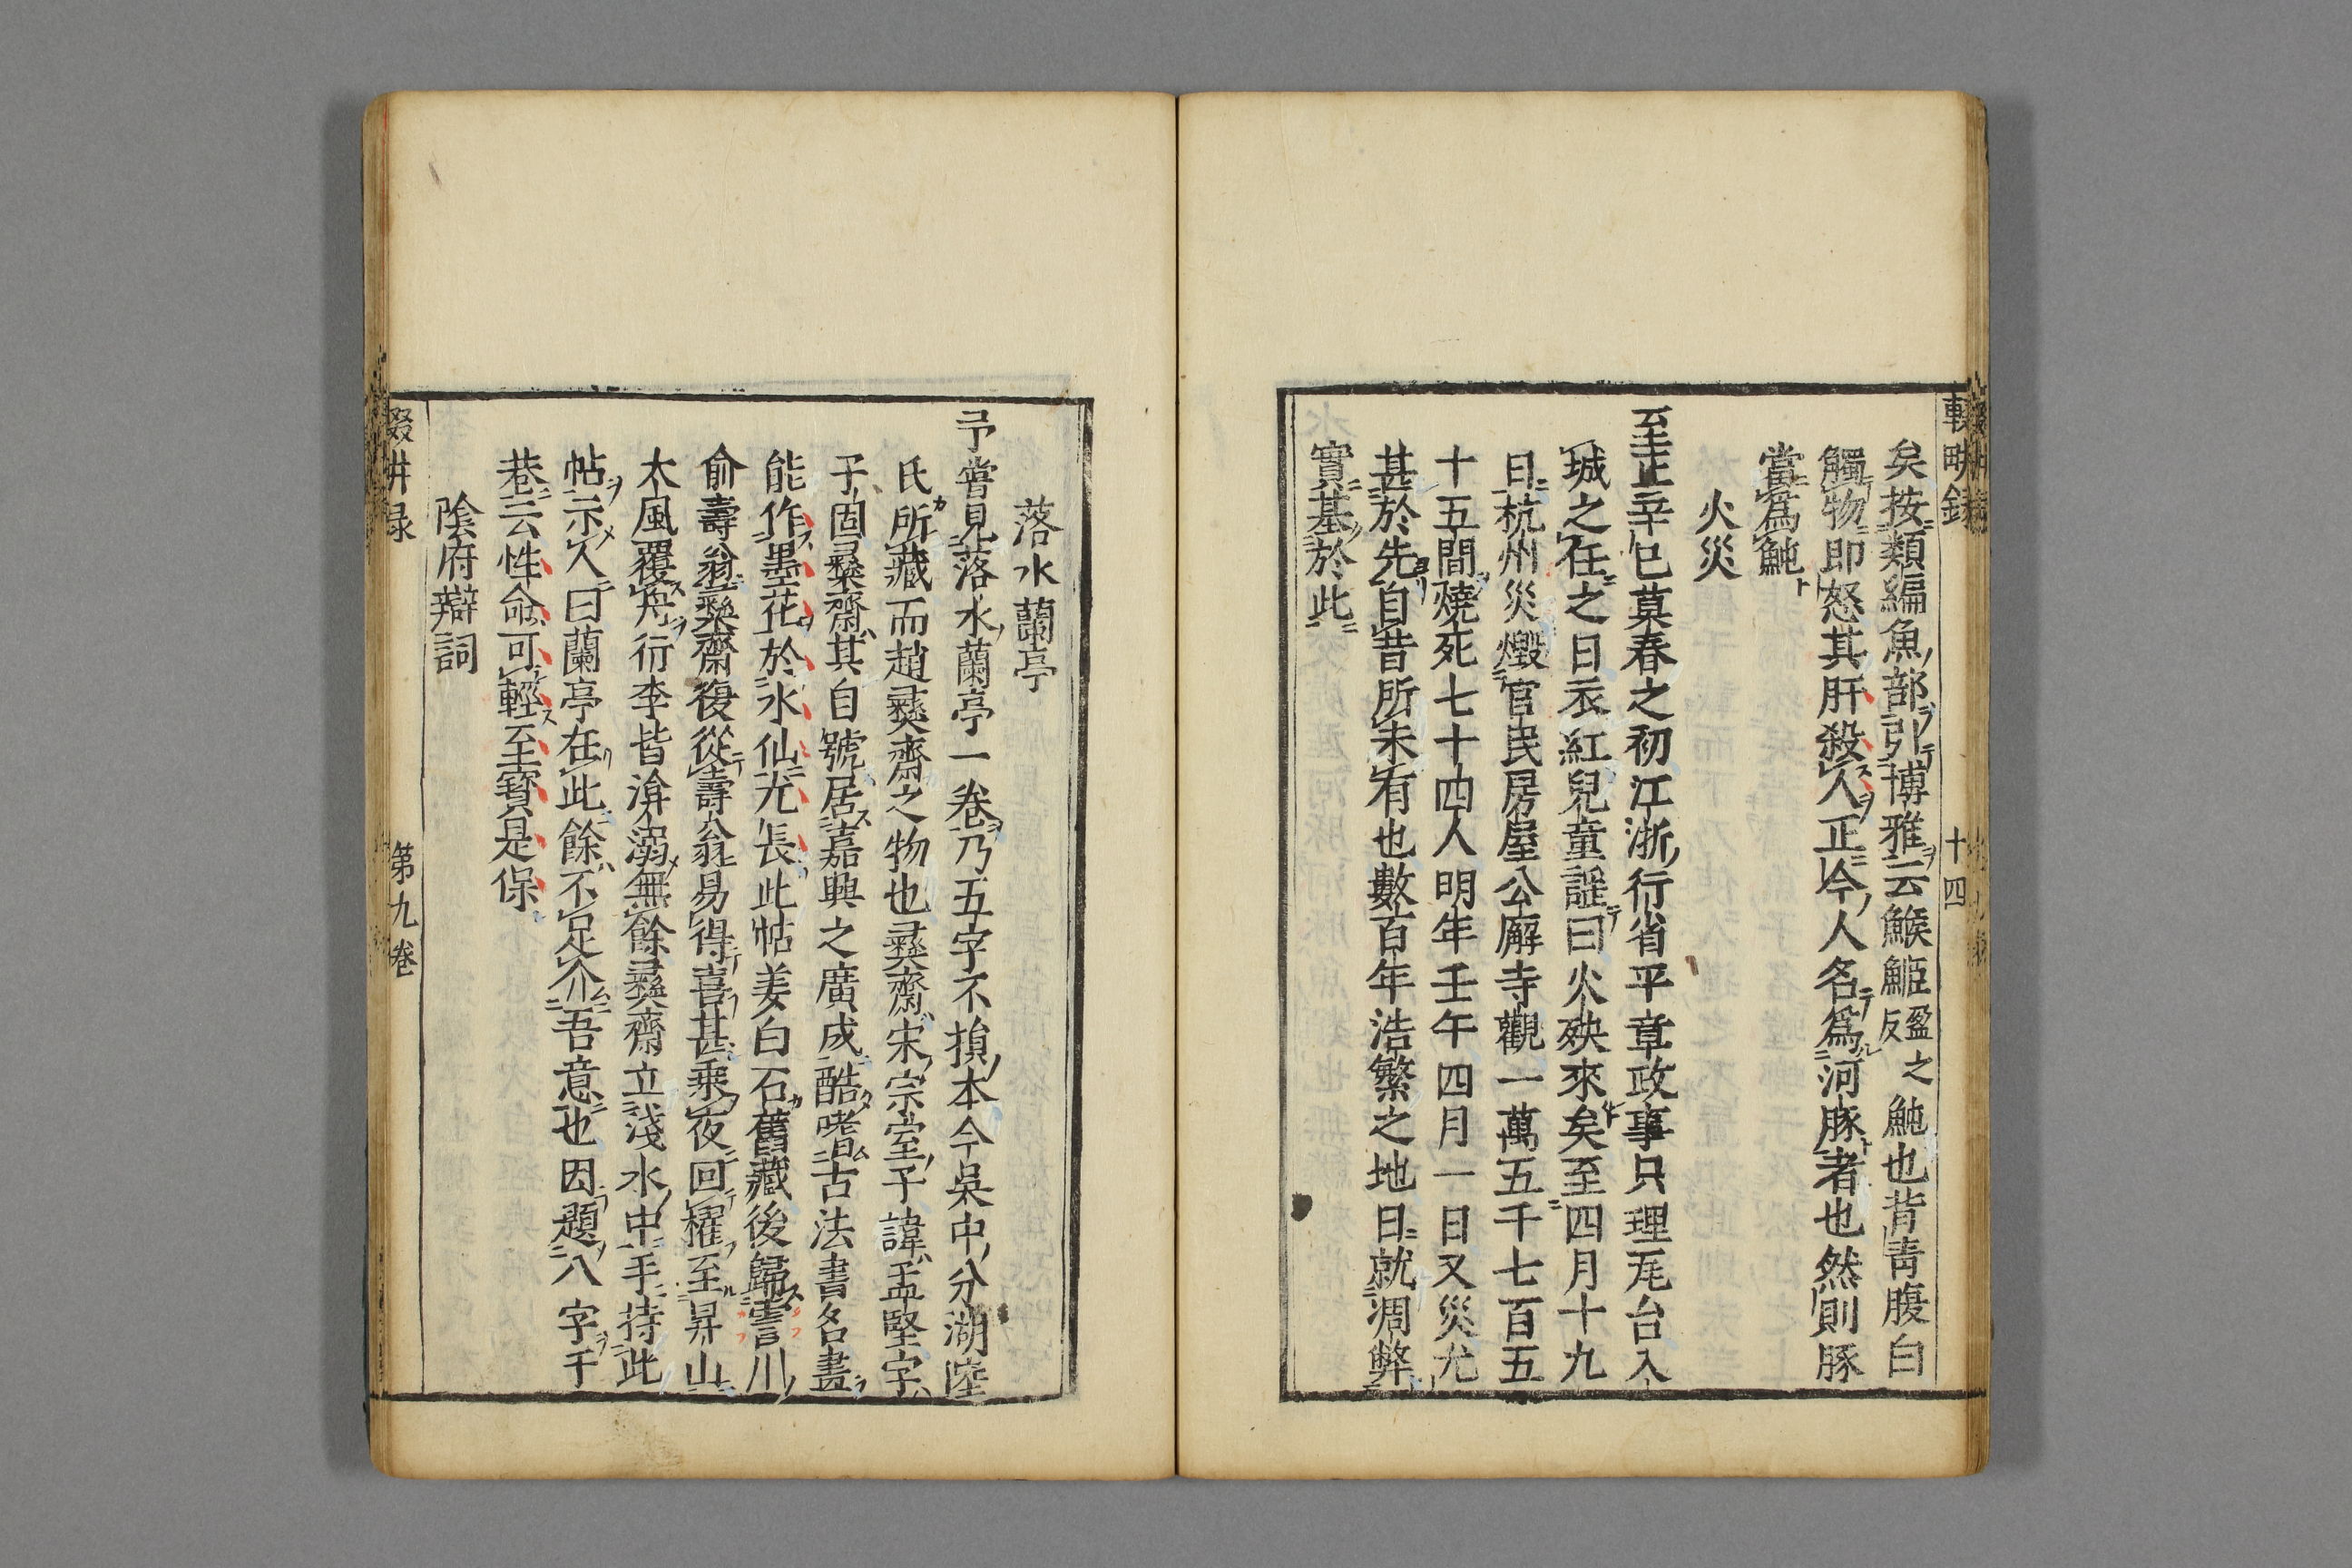 輟畊録
十四
矣按類編魚部引博雅云鯸䱌盈之反鮠也背青腹白
觸物即怒其肝殺人正今人名爲河豚者也然則豚
當爲鮠
火災
至正辛巳莫春之初江浙行省平章政事只理瓦台入
城之任之日衣紅兒童謡曰火殃來矣至四月十九
日杭州災燬官民房屋公廨寺觀一萬五千七百五
十五間燒死七十四人明年壬午四月一日又災尤
甚於先自昔所未有也數百年浩繁之地日就凋弊
實基於此
落水蘭亭
予嘗見落水蘭亭一卷乃五字不損本今吳中分湖陸
氏所藏而趙彛齋之物也彛齋宋宗室子諱孟堅字
子固彛齋其自號居嘉興之廣成酷嗜古法書名畫
能作墨花於水仙尤長此帖姜白石舊藏後歸霅川
俞壽翁彛齋復從壽翁易得喜甚乘夜回櫂至昇山
大風覆舟行李皆渰溺無餘彛齋立淺水中手持此
帖示人曰蘭亭在此餘不足介吾意也因題八字于
卷云性命可輕至寶是保
陰府辯詞
輟畊录
第九卷